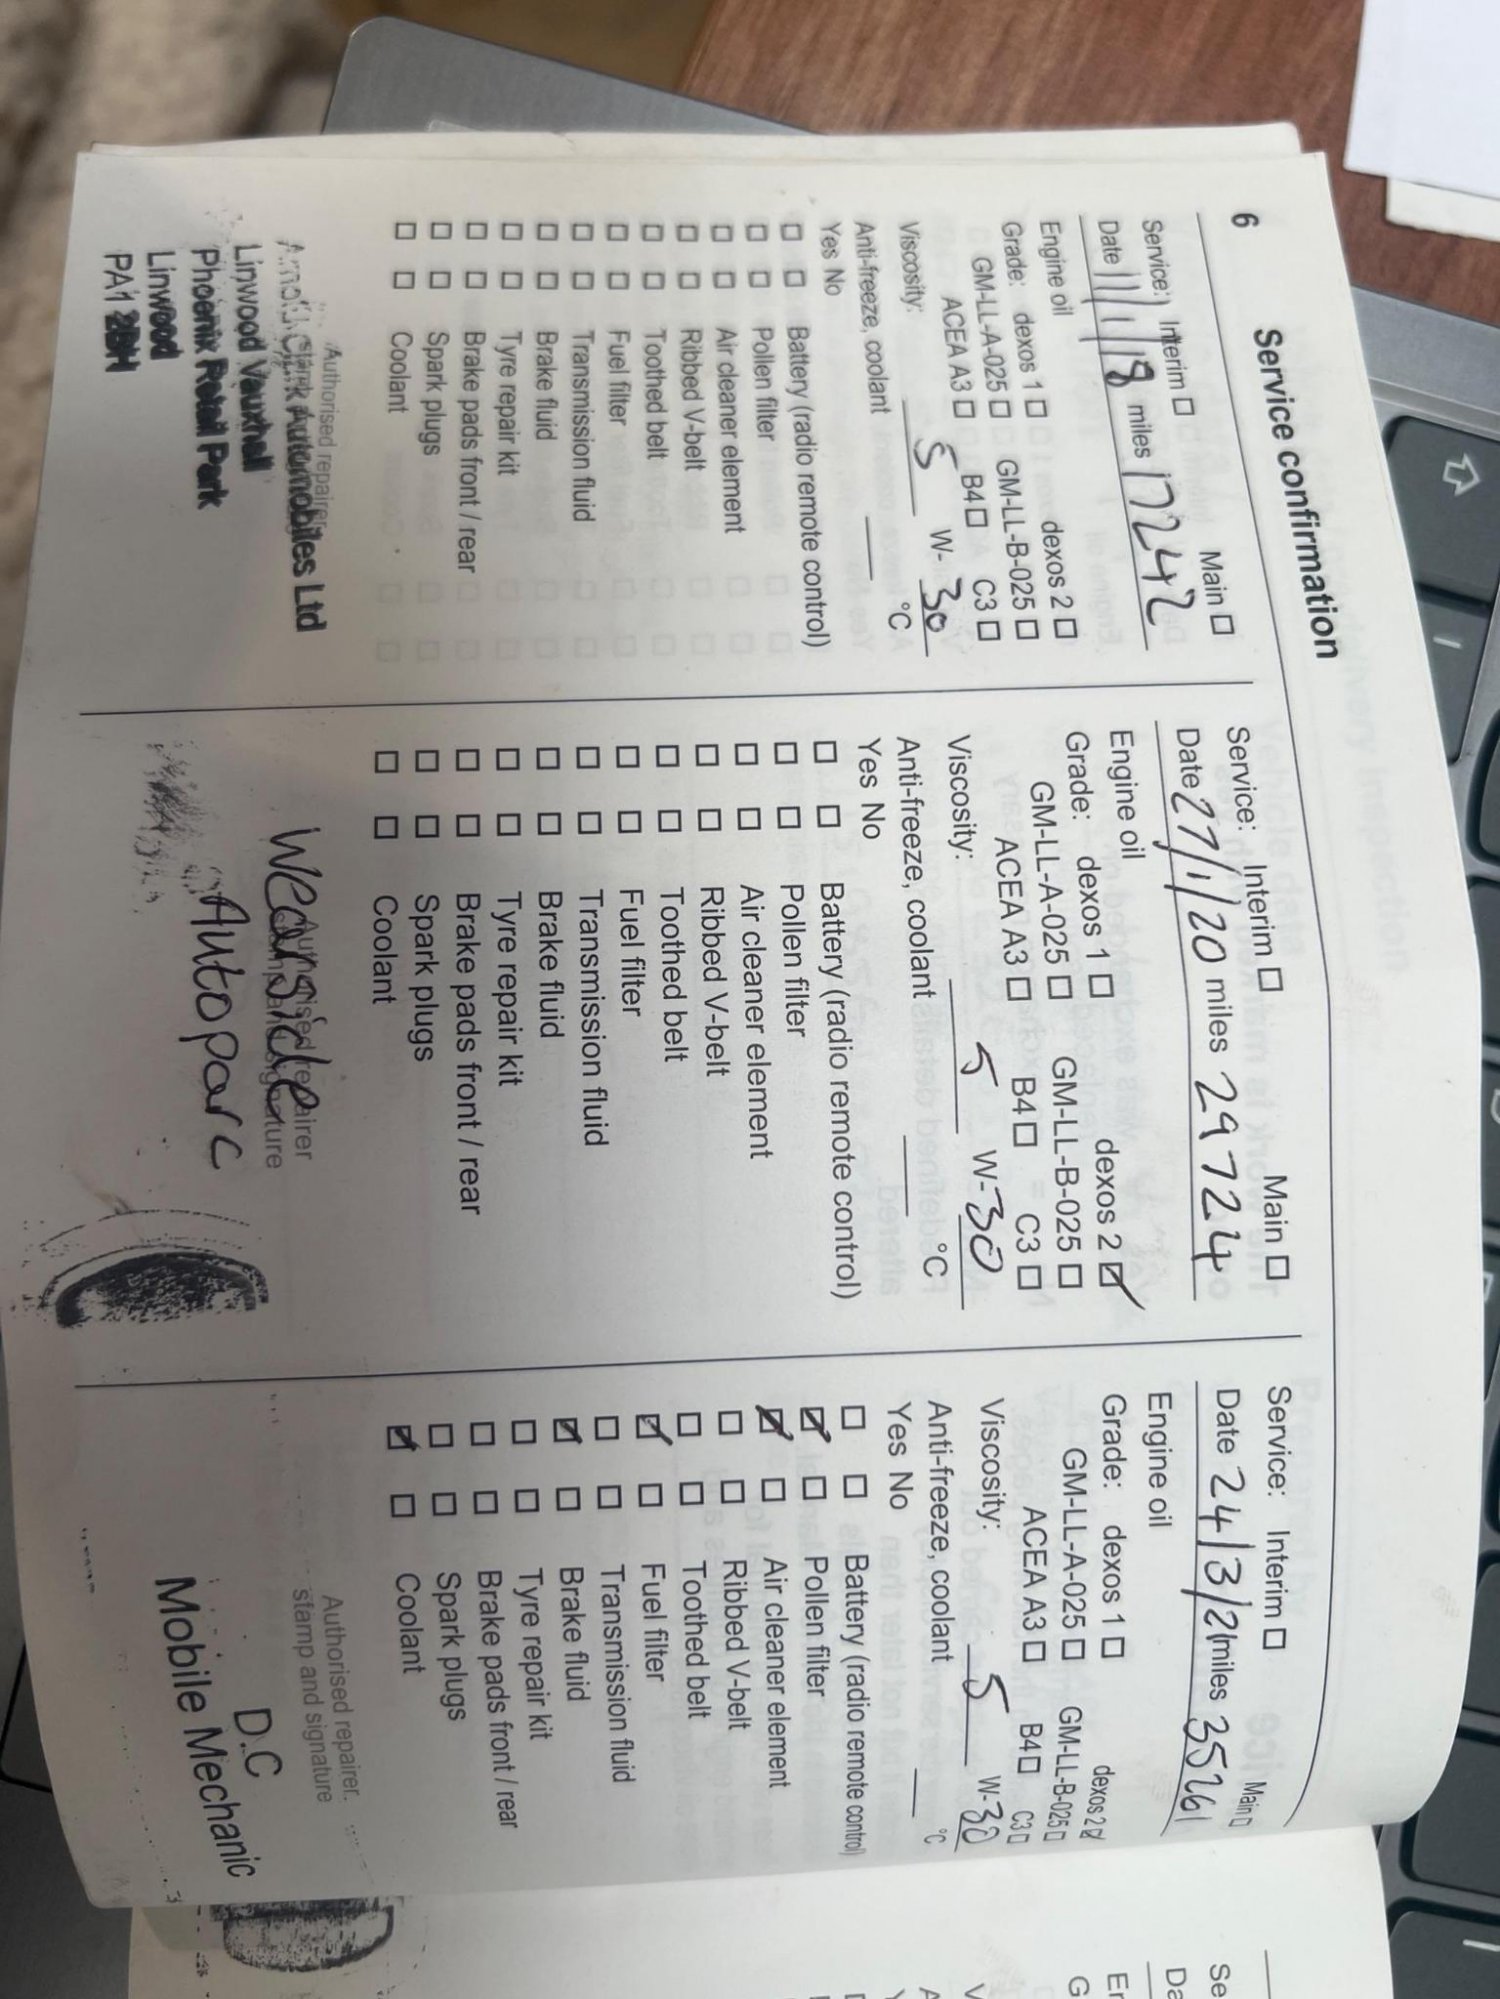 6
Service confirmation
Service: Interim ☐ Main ☐
Date 11/1/18 miles 17242
Engine oil
Grade: dexos 1 ☐ dexos 2 ☐
GM-LL-A-025 ☐ GM-LL-B-025 ☐
ACEA A3 ☐ B4 ☐ C3 ☐
Viscosity: 5 W- 30
Anti-freeze, coolant ____ °C
Yes No
☐ ☐ Battery (radio remote control)
☐ ☐ Pollen filter
☐ ☐ Air cleaner element
☐ ☐ Ribbed V-belt
☐ ☐ Toothed belt
☐ ☐ Fuel filter
☐ ☐ Transmission fluid
☐ ☐ Brake fluid
☐ ☐ Tyre repair kit
☐ ☐ Brake pads front / rear
☐ ☐ Spark plugs
☐ ☐ Coolant
Authorised repairer
Arnold Clark Automobiles Ltd
Linwood Vauxhall
Phoenix Retail Park
Linwood
PA1 2BH
Service: Interim ☐ Main ☐
Date 27/1/20 miles 29724
Engine oil
Grade: dexos 1 ☐ dexos 2 ☑
GM-LL-A-025 ☐ GM-LL-B-025 ☐
ACEA A3 ☐ B4 ☐ C3 ☐
Viscosity: 5 W- 30
Anti-freeze, coolant ____ °C
Yes No
☐ ☐ Battery (radio remote control)
☐ ☐ Pollen filter
☐ ☐ Air cleaner element
☐ ☐ Ribbed V-belt
☐ ☐ Toothed belt
☐ ☐ Fuel filter
☐ ☐ Transmission fluid
☐ ☐ Brake fluid
☐ ☐ Tyre repair kit
☐ ☐ Brake pads front / rear
☐ ☐ Spark plugs
☐ ☐ Coolant
Authorised repairer
stamp and signature
Wearside
Autoparc
Service: Interim ☐ Main ☐
Date 24/3/21 miles 35261
Engine oil
Grade: dexos 1 ☐ dexos 2 ☑
GM-LL-A-025 ☐ GM-LL-B-025 ☐
ACEA A3 ☐ B4 ☐ C3 ☐
Viscosity: 5 W- 30
Anti-freeze, coolant ____ °C
Yes No
☐ ☐ Battery (radio remote control)
☑ ☐ Pollen filter
☑ ☐ Air cleaner element
☐ ☐ Ribbed V-belt
☐ ☐ Toothed belt
☑ ☐ Fuel filter
☐ ☐ Transmission fluid
☑ ☐ Brake fluid
☐ ☐ Tyre repair kit
☐ ☐ Brake pads front / rear
☐ ☐ Spark plugs
☑ ☐ Coolant
Authorised repairer
stamp and signature
D.C
Mobile Mechanic